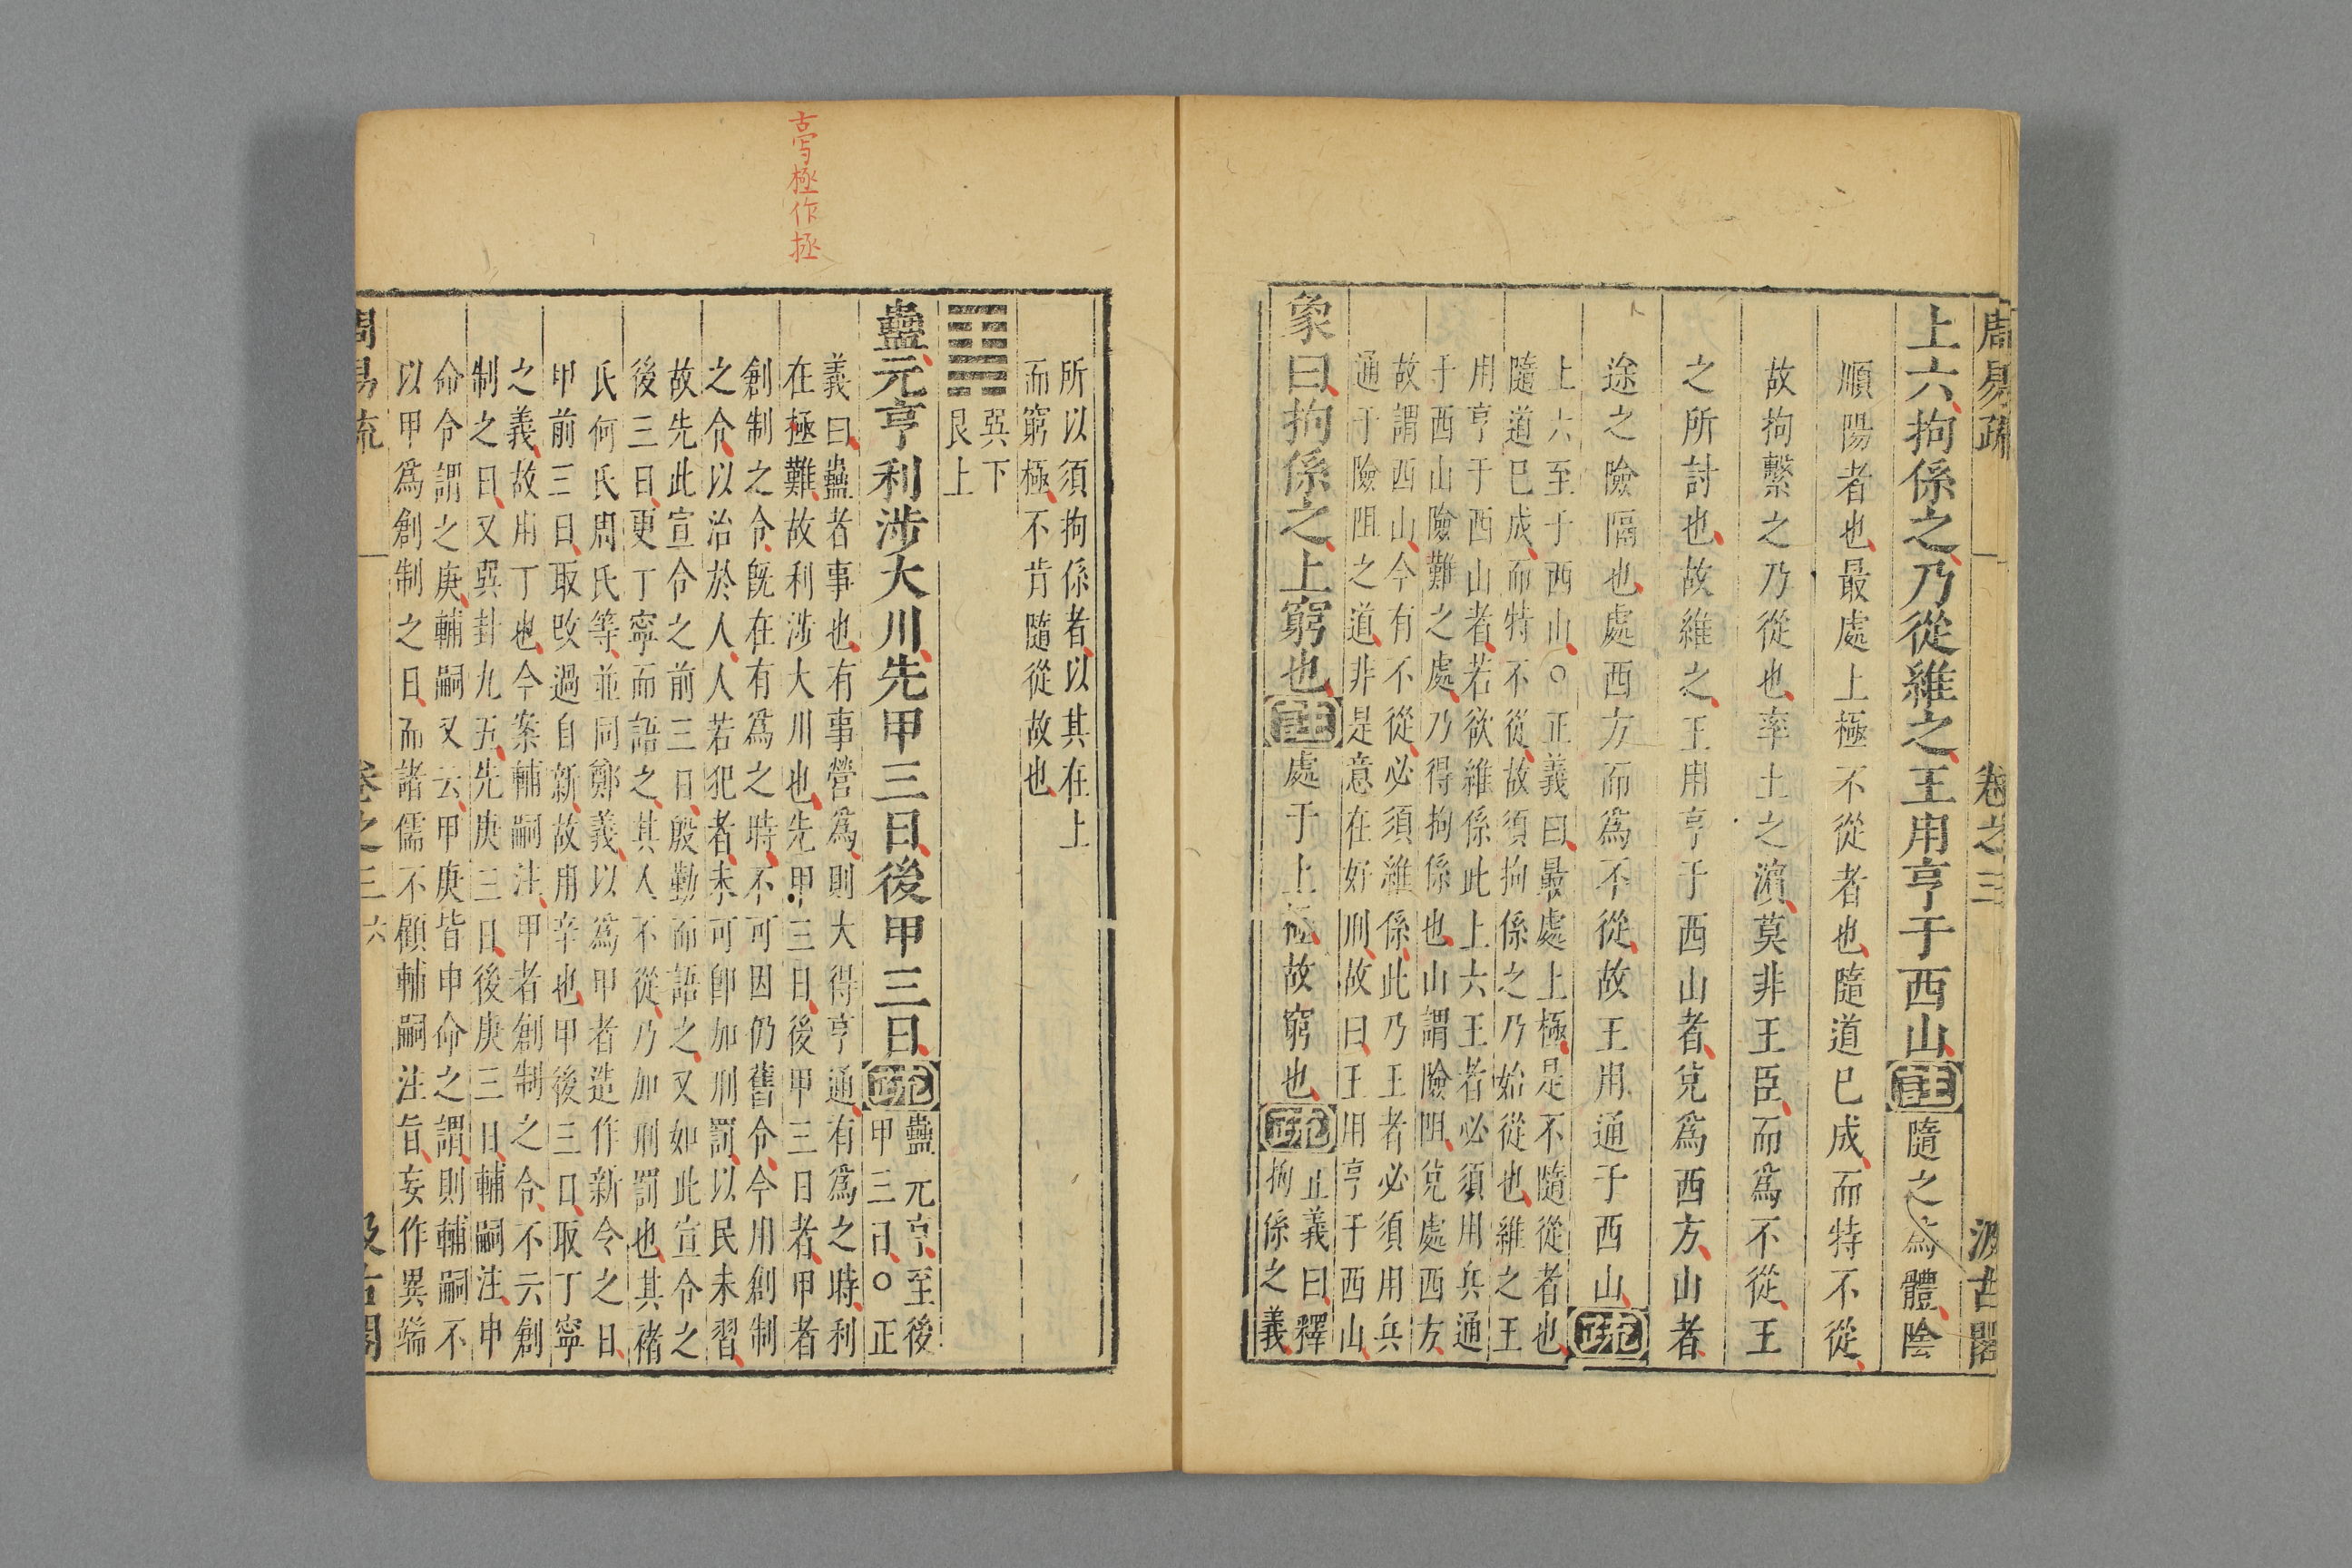 周易疏 卷之三 汲古閣
上六拘係之乃從維之王用亨于西山註隨之爲體陰
順陽者也最處上極不從者也隨道已成而特不從
故拘繫之乃從也率土之濱莫非王臣而爲不從王
之所討也故維之王用亨于西山者兌爲西方山者
途之險隔也處西方而爲不從故王用通于西山疏
上六至于西山○正義曰最處上極是不隨從者也
隨道已成而特不從故須拘係之乃始從也維之王
用亨于西山者若欲維係此上六王者必須用兵通
于西山險難之處乃得拘係也山謂險阻兌處西方
故謂西山今有不從必須維係此乃王者必須用兵
通于險阻之道非是意在好刑故曰王用亨于西山
象曰拘係之上窮也註處于上極故窮也疏
正義曰釋
拘係之義
所以須拘係者以其在上
而窮極不肯隨從故也
巽下
艮上
蠱元亨利涉大川先甲三日後甲三日疏
蠱元亨至後
甲三日○正
義曰蠱者事也有事營爲則大得亨通有爲之時利
在極難故利涉大川也先甲三日後甲三日者甲者
創制之令既在有爲之時不可因仍舊令今用創制
之令以治於人人若犯者未可卽加刑罰以民未習
故先此宣令之前三日殷勤而語之又如此宣令之
後三日更丁寧而語之其人不從乃加刑罰也其褚
氏何氏周氏等並同鄭義以爲甲者造作新令之日
甲前三日取改過自新故用辛也甲後三日取丁寧
之義故用丁也今案輔嗣注甲者創制之令不云創
制之日又巽卦九五先庚三日後庚三日輔嗣注申
命令謂之庚輔嗣又云甲庚皆申命之謂則輔嗣不
以甲爲創制之日而諸儒不顧輔嗣注旨妄作異端
周易疏 卷之三 六 汲古閣
古寫極作拯